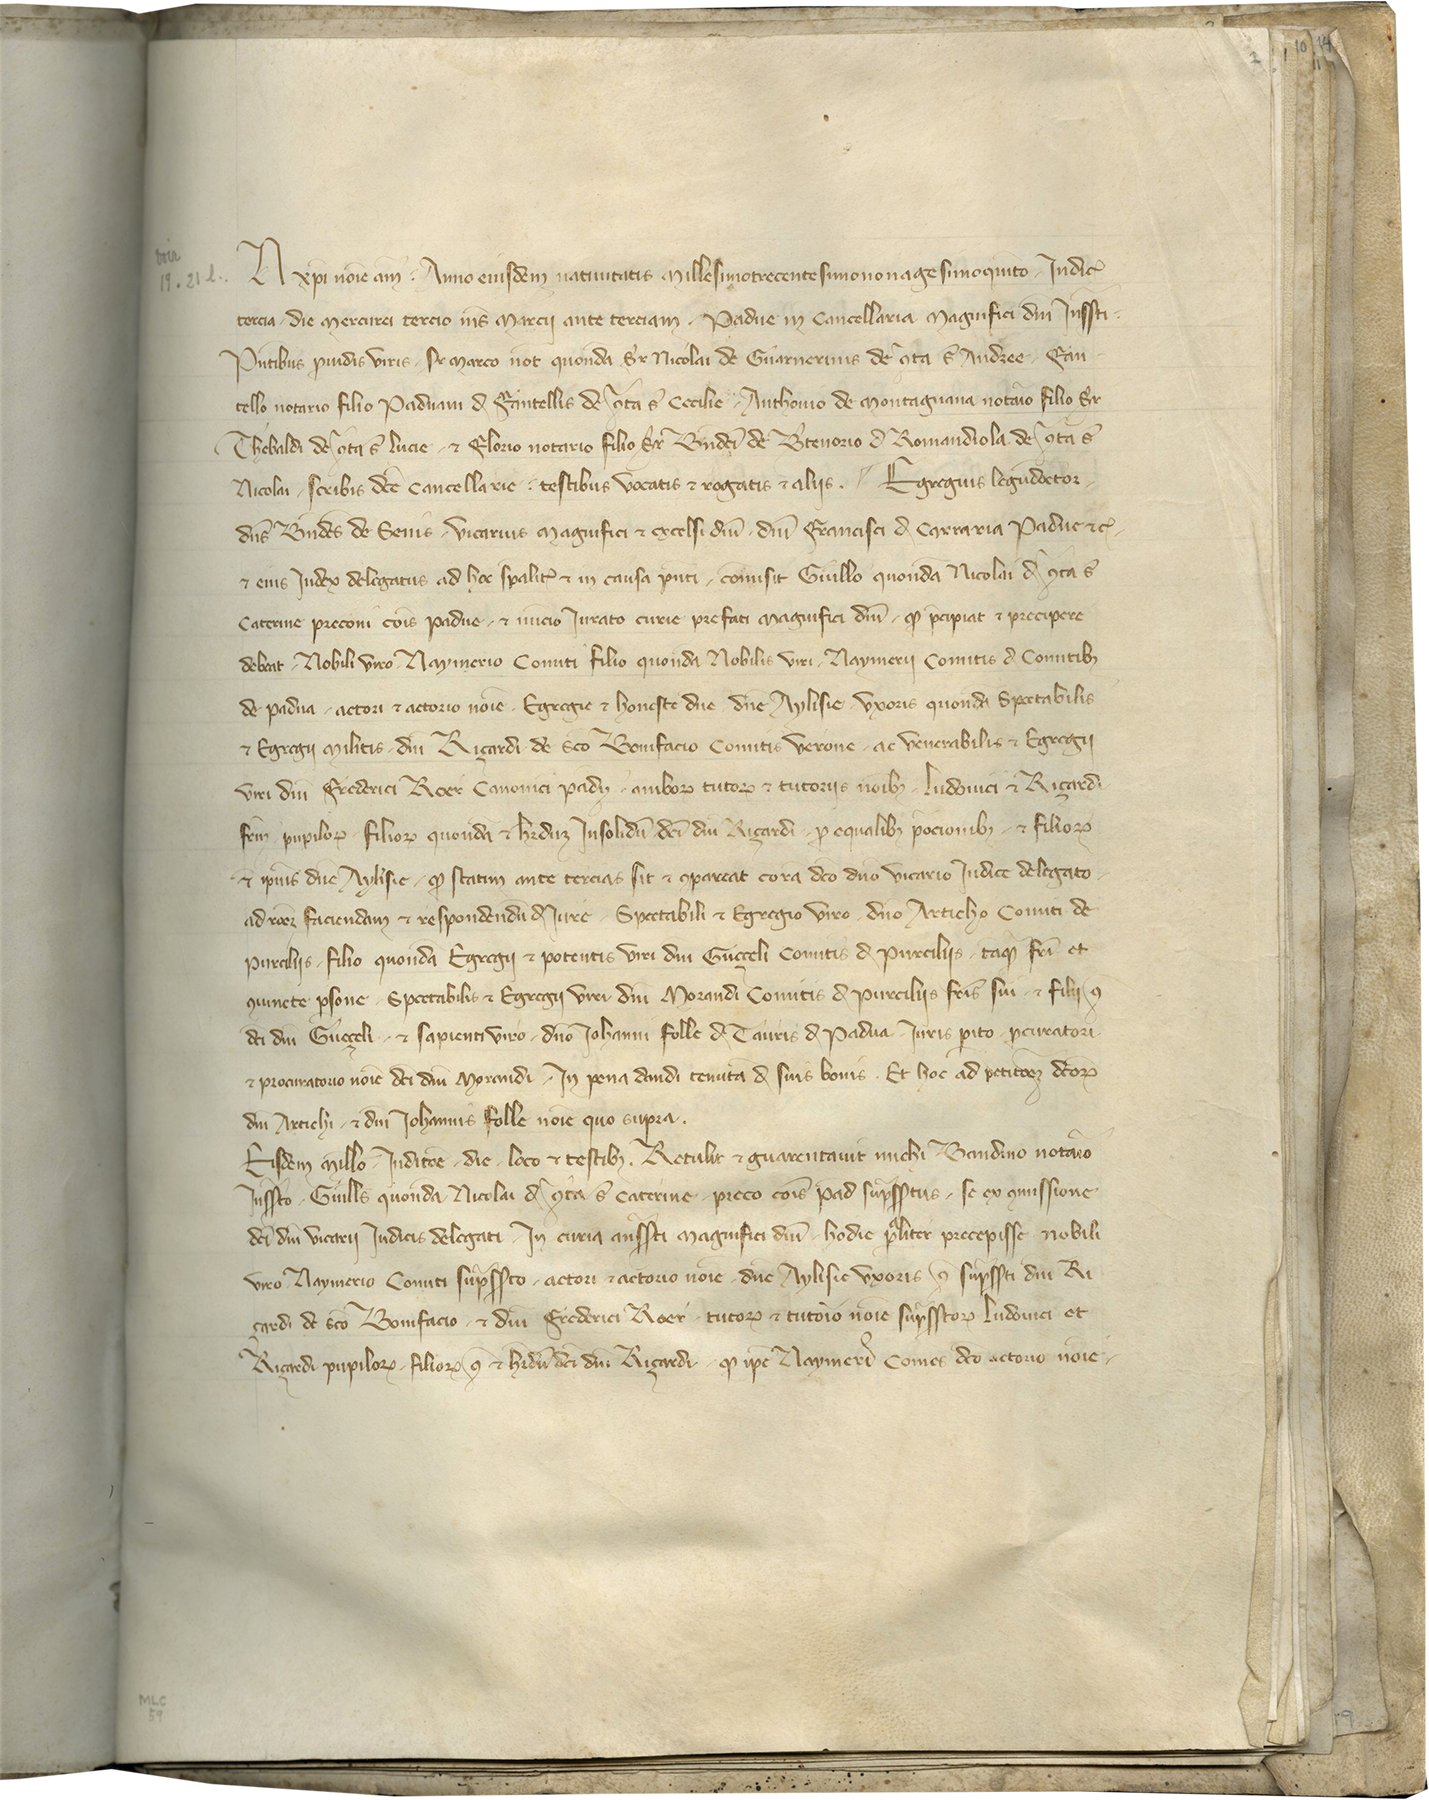 voir
19. 21 l.
2
1
10
14
11
In xpi noīe am̄ : Anno eiusdem natiuitatis Millesimotrecentesimononagesimoquīto / Indic̄
tercia / die Mercurci tercio mīs Marcij ante terciam / Padue in Cancellaria Magnifici dnī Infsctī /
Pn̄tibus puidis viris / Sr Marco not quondā Sr Nicolai de Guarnerinis de 9ta S Andree / Fan
tello notario filio Paduani d Fantellis de 9ta S Cecilie / Anthonio de Montagnana notaīo filio Sr
Thebaldi de 9ta S Lucie / & Florio notario filio Sr Bindī de Bͬtenorio d Romandiola de 9ta S
Nicolai / scribis dc̄e Cancellarie : testibus vocatis & rogatis & alijs . // Egregius legūdoctor /
dn̄s Bindus de Senis / vicarius Magnifici & excelsi dnī / dnī Francisci d Carraria Padue &c̄ /
& eius Judex delegatus ad hoc spaliͭ & in causa pn̄ti / comisit Guillō quondā Nicolai d 9ta S
Caterine preconi cōis padue / & nūcio Jurato curie prefati Magnifici dnī / q̄ p̄cipiat & precipere
debeat / Nobili viro Naymerio Comiti filio quondā Nobilis viri / Naymerij Comitis d Comitib;
de padua / actori & actorio noīe / Egregie & honeste dnē dnē Aylisie / vxoris quondā Spectabilis
& Egregij Militis / dnī Riçardi de Scō Bonifacio Comitis verone / ac venerabilis & Egregij
viri dnī Frederici Roer Canonici padū / amboꝝ tutoꝝ & tutorijs noīb; / Ludouici & Riçardi
frm̄ pupiloꝝ / filioꝝ quondā & hr̄duz Insolidū dcī dnī Riçardi / p equalib; pocionib; / & filioꝝ
& ipīus dnē Aylisie / q̄ statim ante tercias sit & 9pareat corā dcō dnō vicario Judice delegato /
ad rōeꝫ faciendam & respondendū d Jure / Spectabili & Egregio viro / dnō Articho Comiti de
purciliis / filio quondā Egregij & potentis viri dnī Gueçeli Comitis d Purciliis / taq̄ frī et
9iuncte p̄sone / Spectabilis & Egregij viri dnī Morandi Comitis d Purciliis fris̄ sui / & filij 9
dcī dnī Gueçeli / & sapienti viro / dnō Johanni Folle d Tauris d Padua / Juris pito / p̄curatori
& procuratorio noīe dcī dnī Morandi / In pena dandi tenutā d suis bonis . Et hoc ad petitōeꝫ dc̄oꝝ
dnī Artichi / & dnī Johannis Folle noīe quo supra .
Eisdem Millō / Inditōe / die / loco & testib; . Retulit & guarentauit michi Bandino notaīo
Infsctō / Guills quondā Nicolai d 9ta S Caterine / preco cōis pad sup̄sctus / se ex 9missione
dcī dnī vicarij Judicis delegati / In curia anscti Magnifici dnī / hodie pͣliter precepisse nobili
viro Naymerio Comiti sup̄sctō / actori & actorio noīe / dnē Aylisie vxoris 9 sup̄scti dnī Ri
çardi de scō Bonifacio / & dnī Frederici Roer / tutoꝝ & tutoīo noīe sup̄sctoꝝ Ludouici et
Riçardi pupiloꝝ / filioꝝ 9 & hr̄dū dcī dnī Riçardi / q̄ ipē Naymeri Comes dcō actorio noīe /
MLC
59